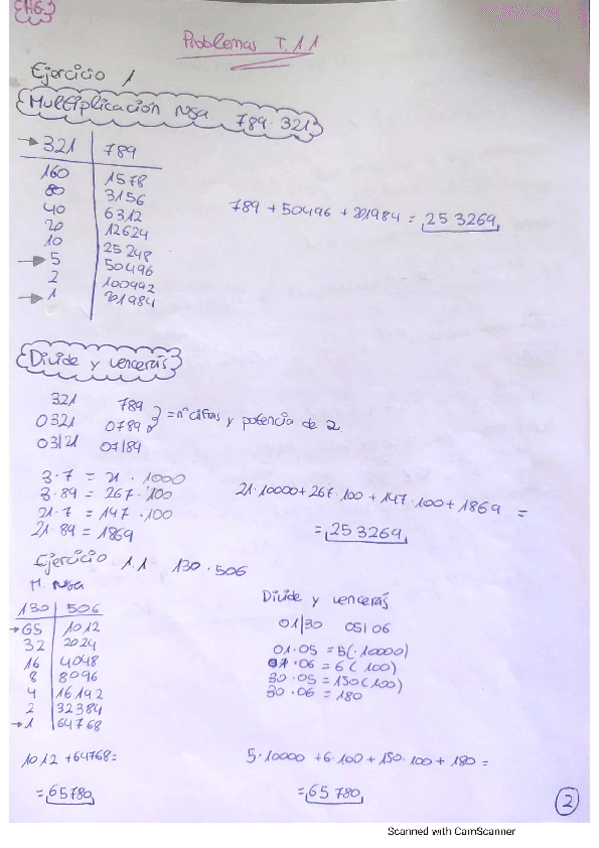 Problemas T.1.1
Ejercicio 1
Multiplicación rusa 789 · 321
→ 321 | 789
160 | 1578
80 | 3156
40 | 6312
20 | 12624
10 | 25248
→ 5 | 50496
2 | 100992
→ 1 | 201984
789 + 50496 + 201984 = 253269
Divide y vencerás
321 789
0321 0789 } = nº cifras y potencia de 2
03|21 07|89
3·7 = 21 · 1000
3·89 = 267 · 100
21·7 = 147 · 100
21·89 = 1869
21·10000 + 267·100 + 147·100 + 1869 =
= 253269
Ejercicio 1.1 130·506
M. rusa
130 | 506
→ 65 | 1012
32 | 2024
16 | 4048
8 | 8096
4 | 16192
2 | 32384
→ 1 | 64768
1012 + 64768 =
= 65780
Divide y vencerás
01|30 05|06
01·05 = 5(·10000)
01·06 = 6(100)
30·05 = 150(100)
30·06 = 180
5·10000 + 6·100 + 150·100 + 180 =
= 65780
2
Scanned with CamScanner